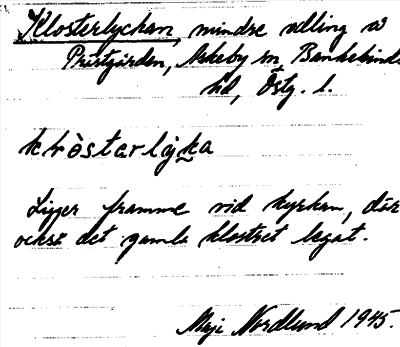 Klosterlyckan, mindre välling av
Prästgården, Askeby sn, Bankekinds
hd, Östg. l.
klòsterlyka
Ligger framme vid kyrkan, där
också det gamla klostret legat.
Maj Nordlund 1945.